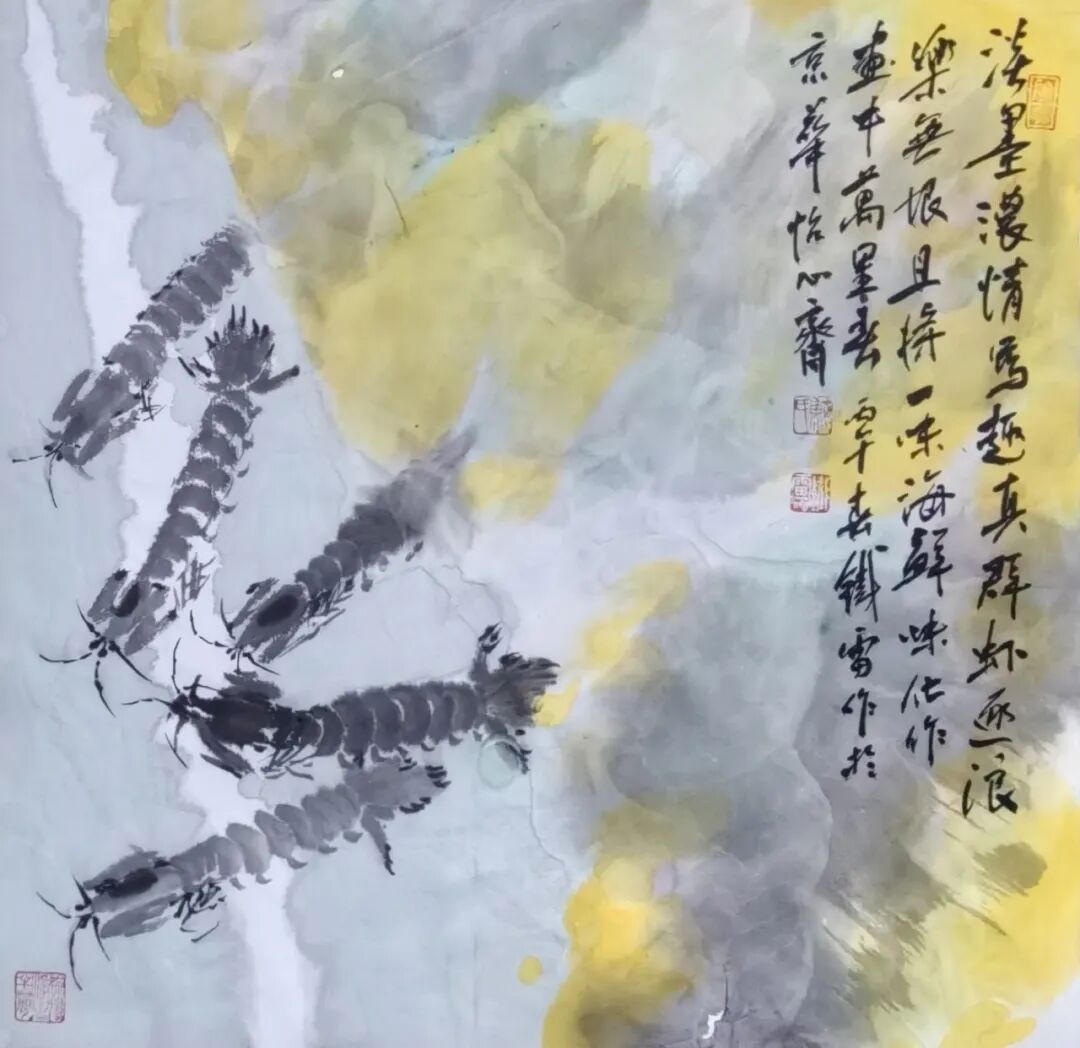 淡墨濃情寫趣真群虾逐浪
樂無垠且將一味海鮮味化作
畫中萬里春 丙午春鐵雷作於
京華怡心齋